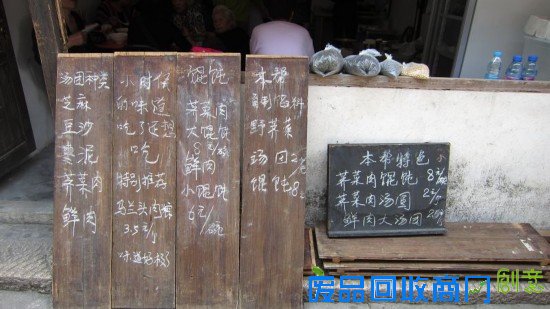 汤团种类
芝麻
豆沙
枣泥
荠菜肉
鲜肉
小时侯
的味道
吃了还想
吃
特别推荐
马兰头肉馄
3.5元/
味道好极
馄饨
荠菜肉
大馄饨
8元/碗
鲜肉
小馄饨
6元/碗
本帮
自制馅料
野荠菜
汤团2元/
馄饨8
本帮特色
荠菜肉馄饨 8元/
荠菜肉汤圆 2元/
鲜肉大汤圆
创意
废品回收商网